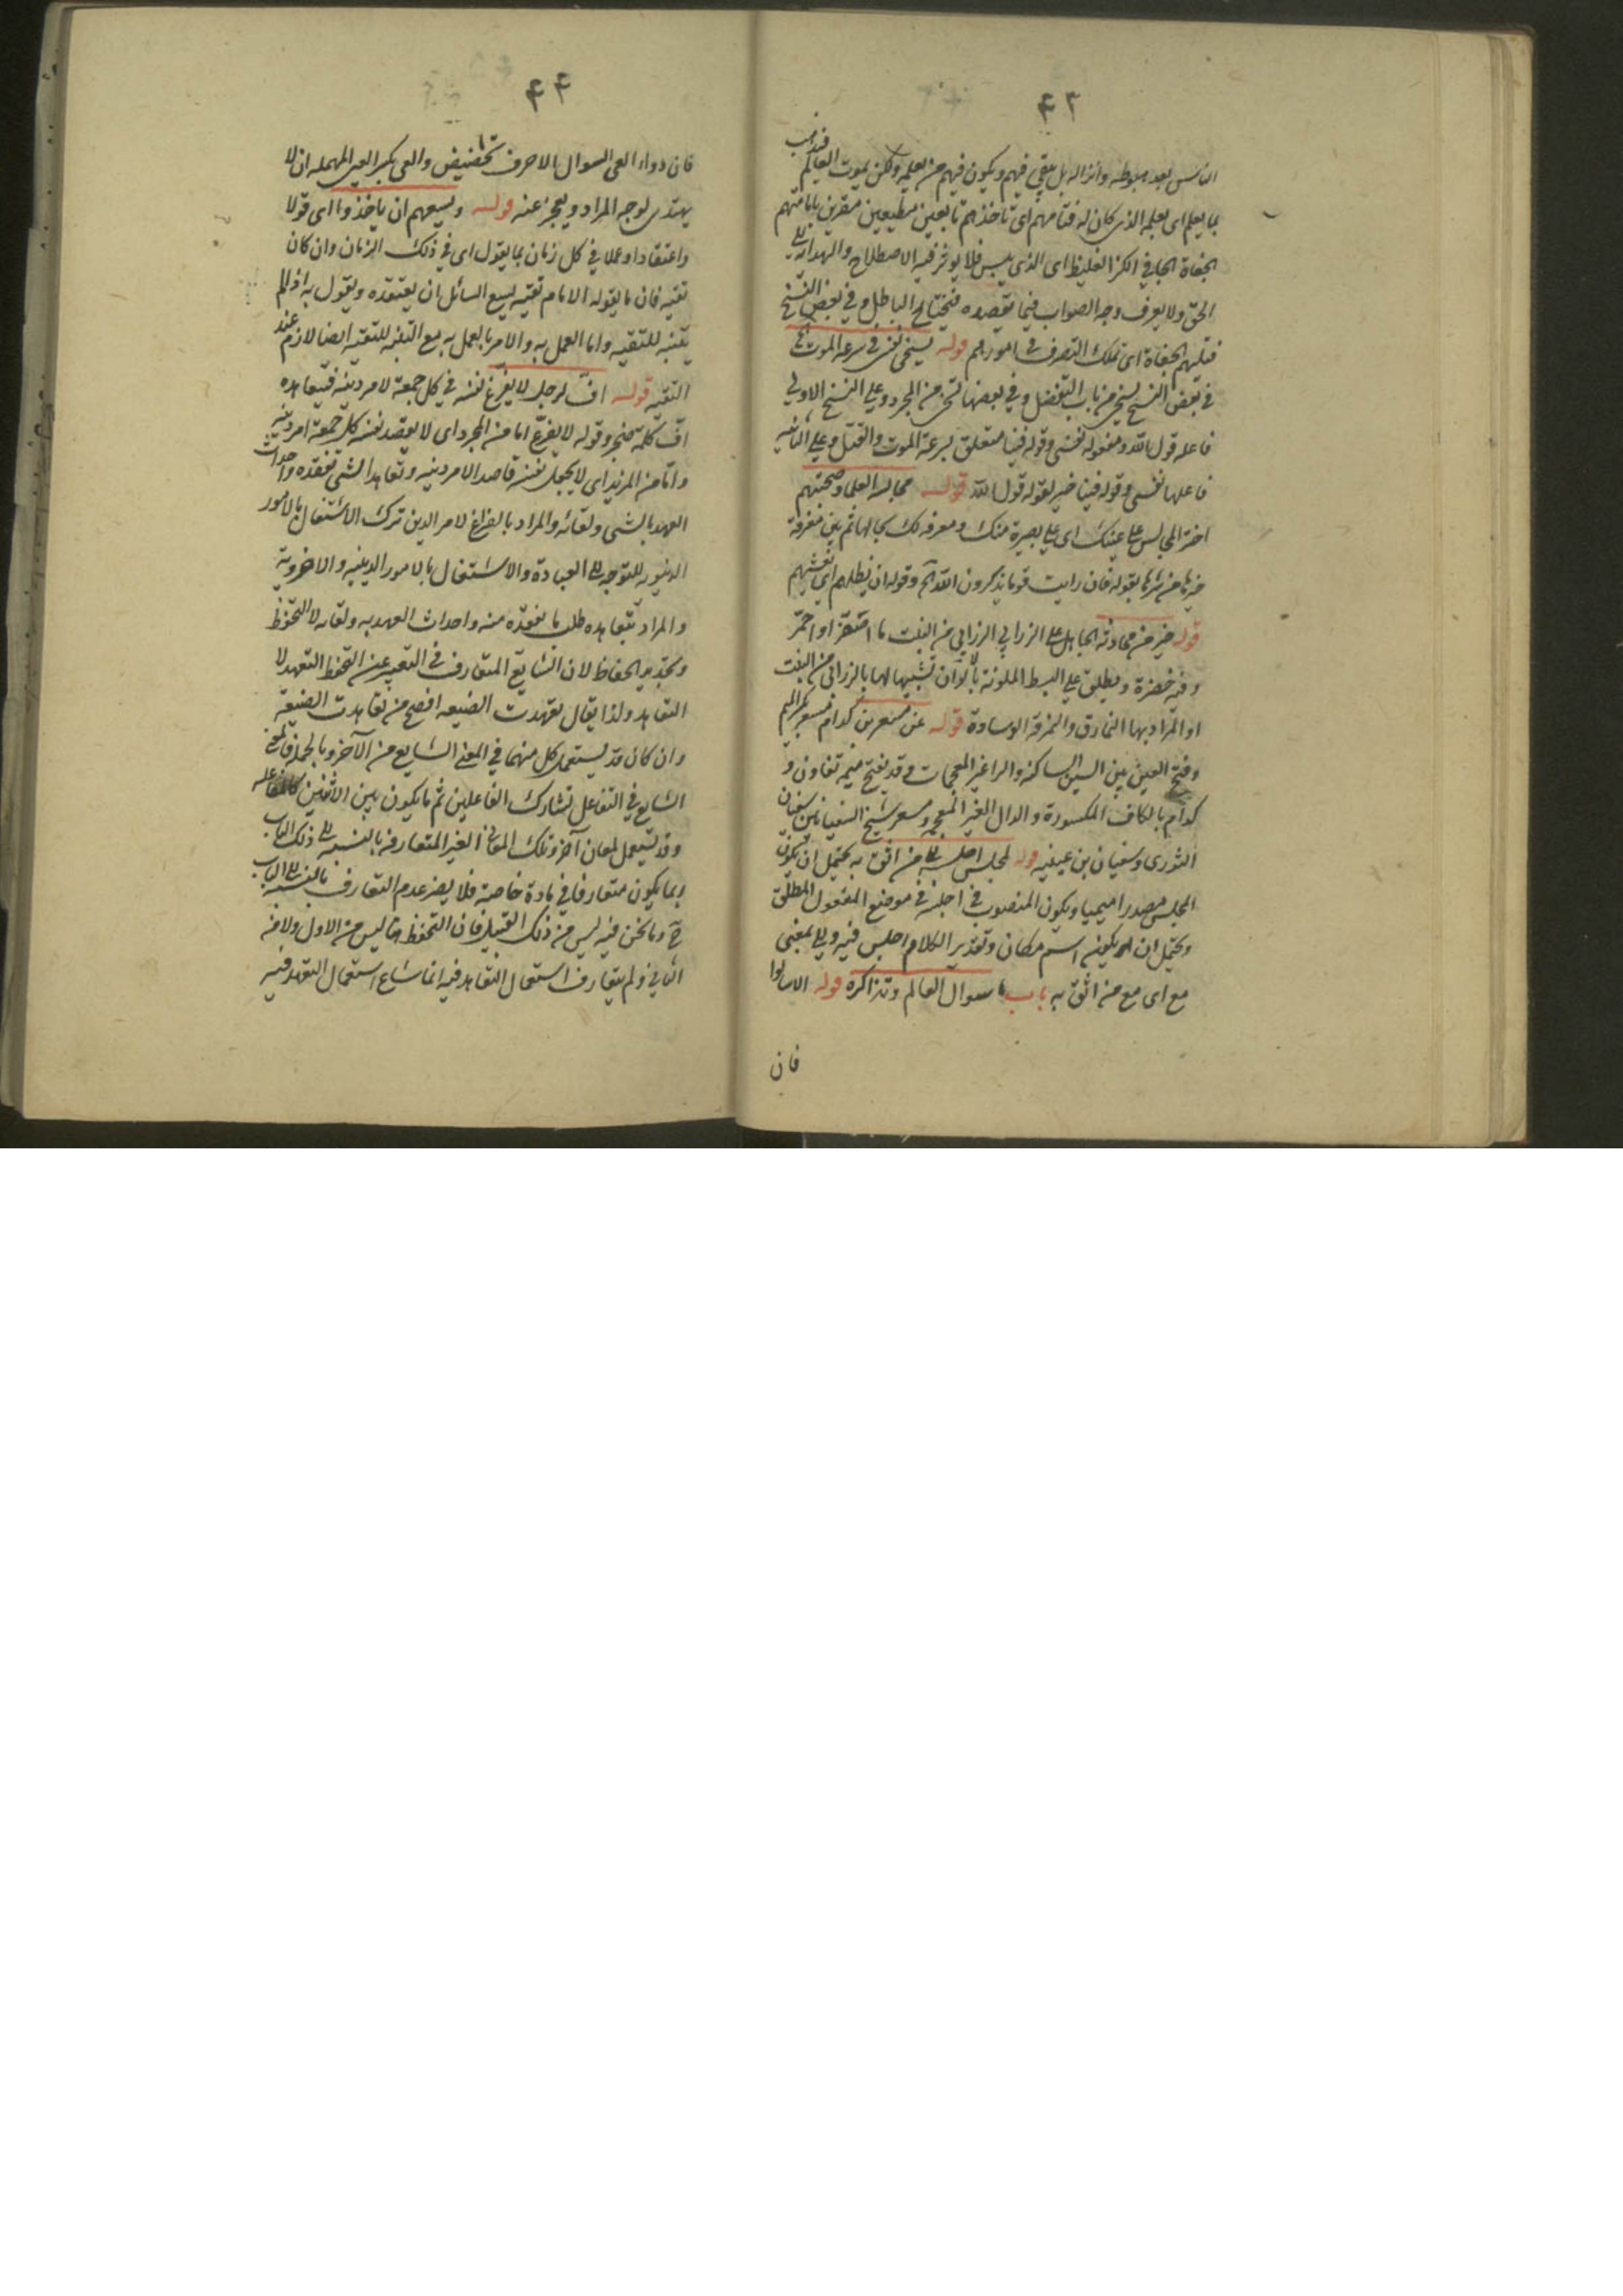 ۴۳
الناس بعد هبوطه وانزاله بل يبقى فيهم ويكون فيهم من يعلمه ولكن يموت العالم فيذهب
بما يعلم اى بعلمه الذى كان له فتامهم اى تاخذهم تابعين مطيعين مقرين بامامتهم
الجفاة الجافي الكز الغليظ اى الذى يبس فلا يوثر فيه الاصطلاح والهداية الى
الحق ولا يعرف وجه الصواب فيما يقصده الباطل وفي بعض النسخ
فتليهم الجفاة اى تملك التصرف في امورهم قوله يسخى نفسى في سرعة الموت
في بعض النسخ يسخى من باب التفعيل وفي بعضها تسخى من المجرد وعلى النسخ الاولى
فاعله قول الله ومفعوله نفسى وقوله فينا متعلق بسرعة الموت والقتل وعلى الثانيه
فاعلها نفسى وقوله فينا خبر لقوله قول الله قوله مجالسة العلماء وصحبتهم
اختر المجالس على عينك اى على بصيرة منك ومعرفه لك بحالها ثم بين معرفة
خيرها من شرها بقوله فان رايت قوما يذكرون الله آه وقوله ان يظلهم اى يغشيهم
قوله خير من محادثة الجاهل على الزرابي الزرابي من النبت ما اصفر او احمر
وفيه خضرة ويطلق على البسط الملونة بالوان تشبيها لها بالزرابي من النبت
او المراد بها النمارق والنمرقة الوسادة قوله عن مسعر بن كدام مسعر بكسر الميم
وفتح العين بين السين الساكنه والراء الغير المعجمات وقد يفتح ميمه تفاولا و
كدام بالكاف المكسورة والدال الغير المعجم ومسعر شيخ السفيانين سفيان
الثورى وسفيان بن عيينه قوله لمجلس اجلسه الى من اثق به يحتمل ان يكون
المجلس مصدرا ميميا ويكون المنصوب في اجلسه في موضع المفعول المطلق
ويحتمل ان يكون اسم مكان وتقدير الكلام اجلس فيه والى بمعنى
مع اى مع من اثق به باب سوال العالم وتذاكره قوله الا سالوا
فان
۴۴
فان دواء العى السوال الا حرف تحضيض والعى بكسر العين المهمله ان لا
يهتدى لوجه المراد ويعجز عنه قوله ويسعهم ان ياخذوا اى قولا
واعتقادا وعملا في كل زمان بما يقول اى في ذلك الزمان وان كان
تقيه فان ما يقوله الامام تقيه يسع السائل ان يعتقده ويقول به اذا لم
يتنبه للتقيه واما العمل به والامر بالعمل به مع التنبه للتقيه ايضا لازم عند
التقيه قوله اف لرجل لا يفرغ نفسه في كل جمعة لامر دينه فيتعاهده
اف كلمة ضجر وقوله لا يفرغ اما من المجرد اى لا يقصد نفسه كل جمعة امر دينه
واما من المزيد اى لا يجعل نفسه قاصدا لامر دينه وتعاهد الشى تفقده واحداث
العهد بالشى ولقائه والمراد بالفراغ لامر الدين ترك الاشتغال بالامور
الدنيويه للتوجه الى العبادة والاشتغال بالامور الدينيه والاخروية
والمراد بتعاهده طلب ما يفقده منه واحداث العهد به ولقائه لا التحفظ
وتجديد الحفاظ لان الشايع المتعارف في التعبير عن التحفظ التعهد لا
التعاهد ولذا يقال تعهدت الضيعه افصح من تعاهدت الضيعة
وان كان قد يستعمل كل منهما في المعنى الشايع من الآخر وبالجملة فالمعنى
الشايع في التفاعل تشارك الفاعلين ثم ما يكون بين الاثنين كالمفاعله
وقد يستعمل لمعان آخر وتلك المعانى الغير المتعارفه بالنسبه الى ذلك الباب
ربما يكون متعارفا في مادة خاصة فلا يضر عدم التعارف بالنسبه الى الباب
ح وما نحن فيه ليس من ذلك القبيل فان التحفظ هنا ليس من الاول ولا من
الثاني ولم يتعارف استعمال التعاهد فيه انما شاع استعمال التعهد فيه